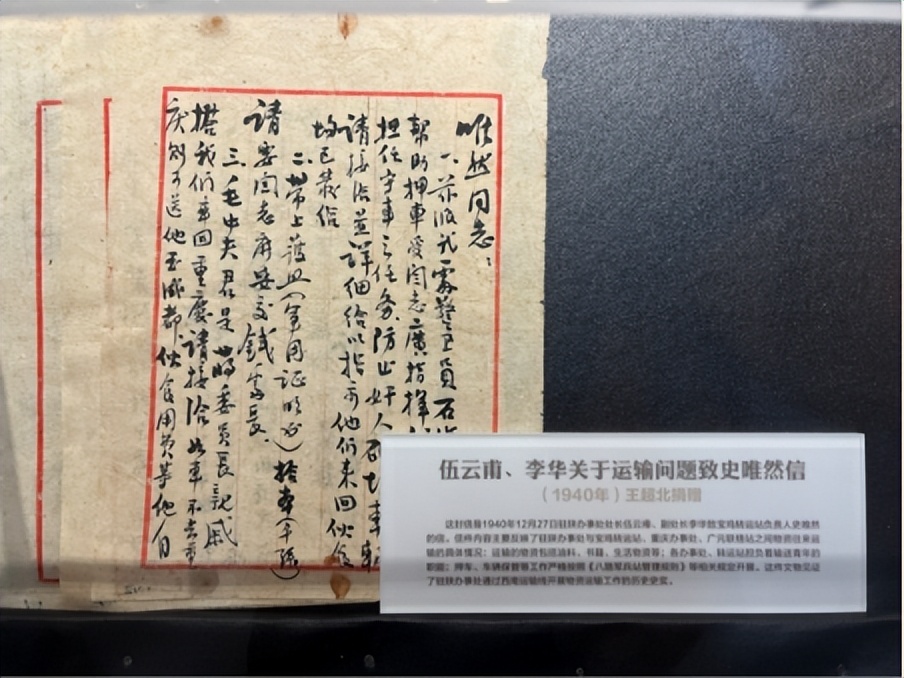 唯然同志：
一、茲派我處警卫員石
幫助押車受闫志廣指揮
担任守車之任务防止奸人破坏車輛
請接洽並詳细给以指示他们来回伙食
均已發给
二、带上護照（軍用证明书）拾本
請要闫志府妥交錢處長
三、毛中夫君是蔣委員長親戚
搭我们車回重慶請接洽如車不去重
庆则可送他至成都、伙食用费等他自
伍云甫、李华关于运输问题致史唯然信
（1940年）王超北捐赠
这封信是1940年12月27日驻陕办事处处长伍云甫、副处长李华致宝鸡转运站负责人史唯然
的信。信件内容主要反映了驻陕办事处与宝鸡转运站、重庆办事处、广元联络站之间物资往来运
输的具体情况；运输的物资包括油料、书籍、生活物资等；各办事处、转运站担负着输送青年的
职能；押车、车辆保管等工作严格按照《八路军兵站管理规则》等相关规定开展。这件文物见证
了驻陕办事处通过西南运输线开展物资运输工作的历史史实。